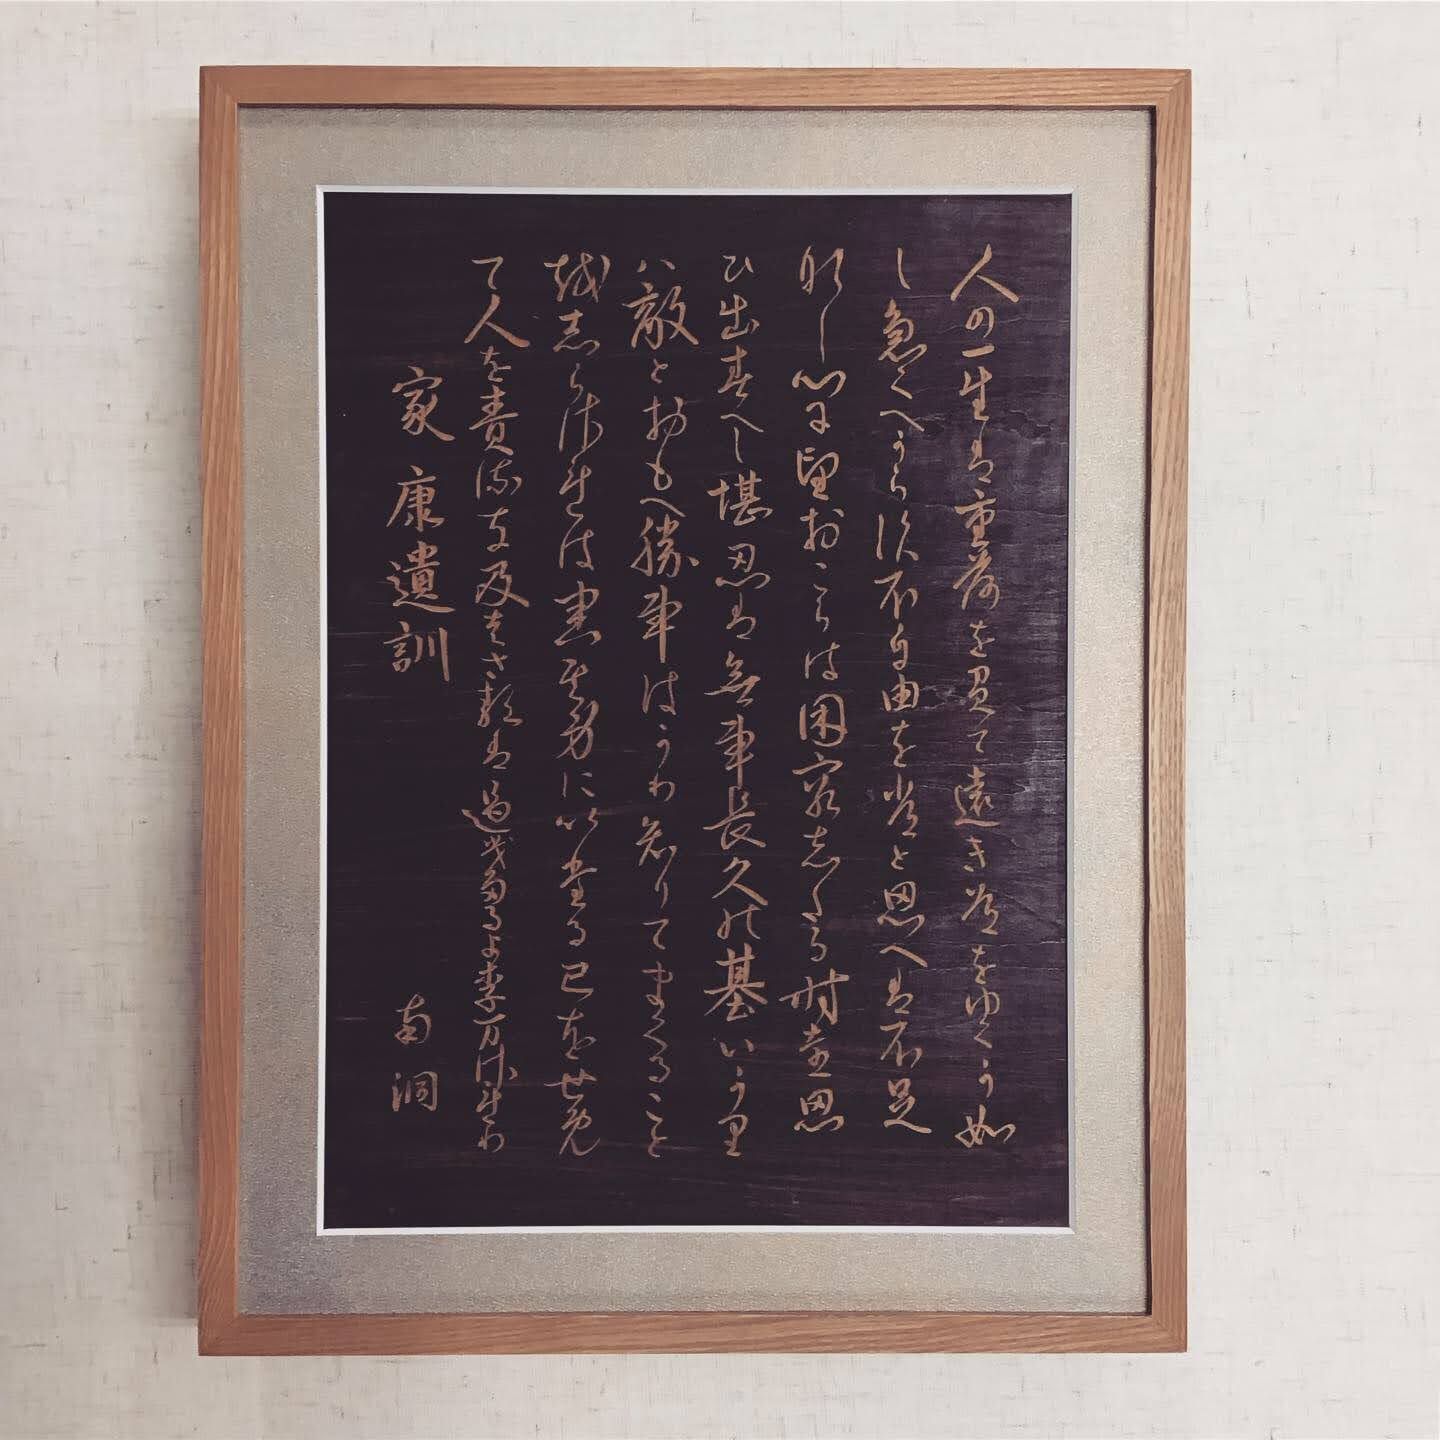 人の一生は重荷を負て遠き道をゆくか如
し急くへからす不自由を常と思へは不足
なし心に望おこらは困窮したる時を思
ひ出すへし堪忍は無事長久の基いかり
は敵とおもへ勝事はかり知りてまくること
越志らされは害其身にいたる己を せめ
て人を責るな及はさるは過たるよりま され り
家康遺訓
南洞